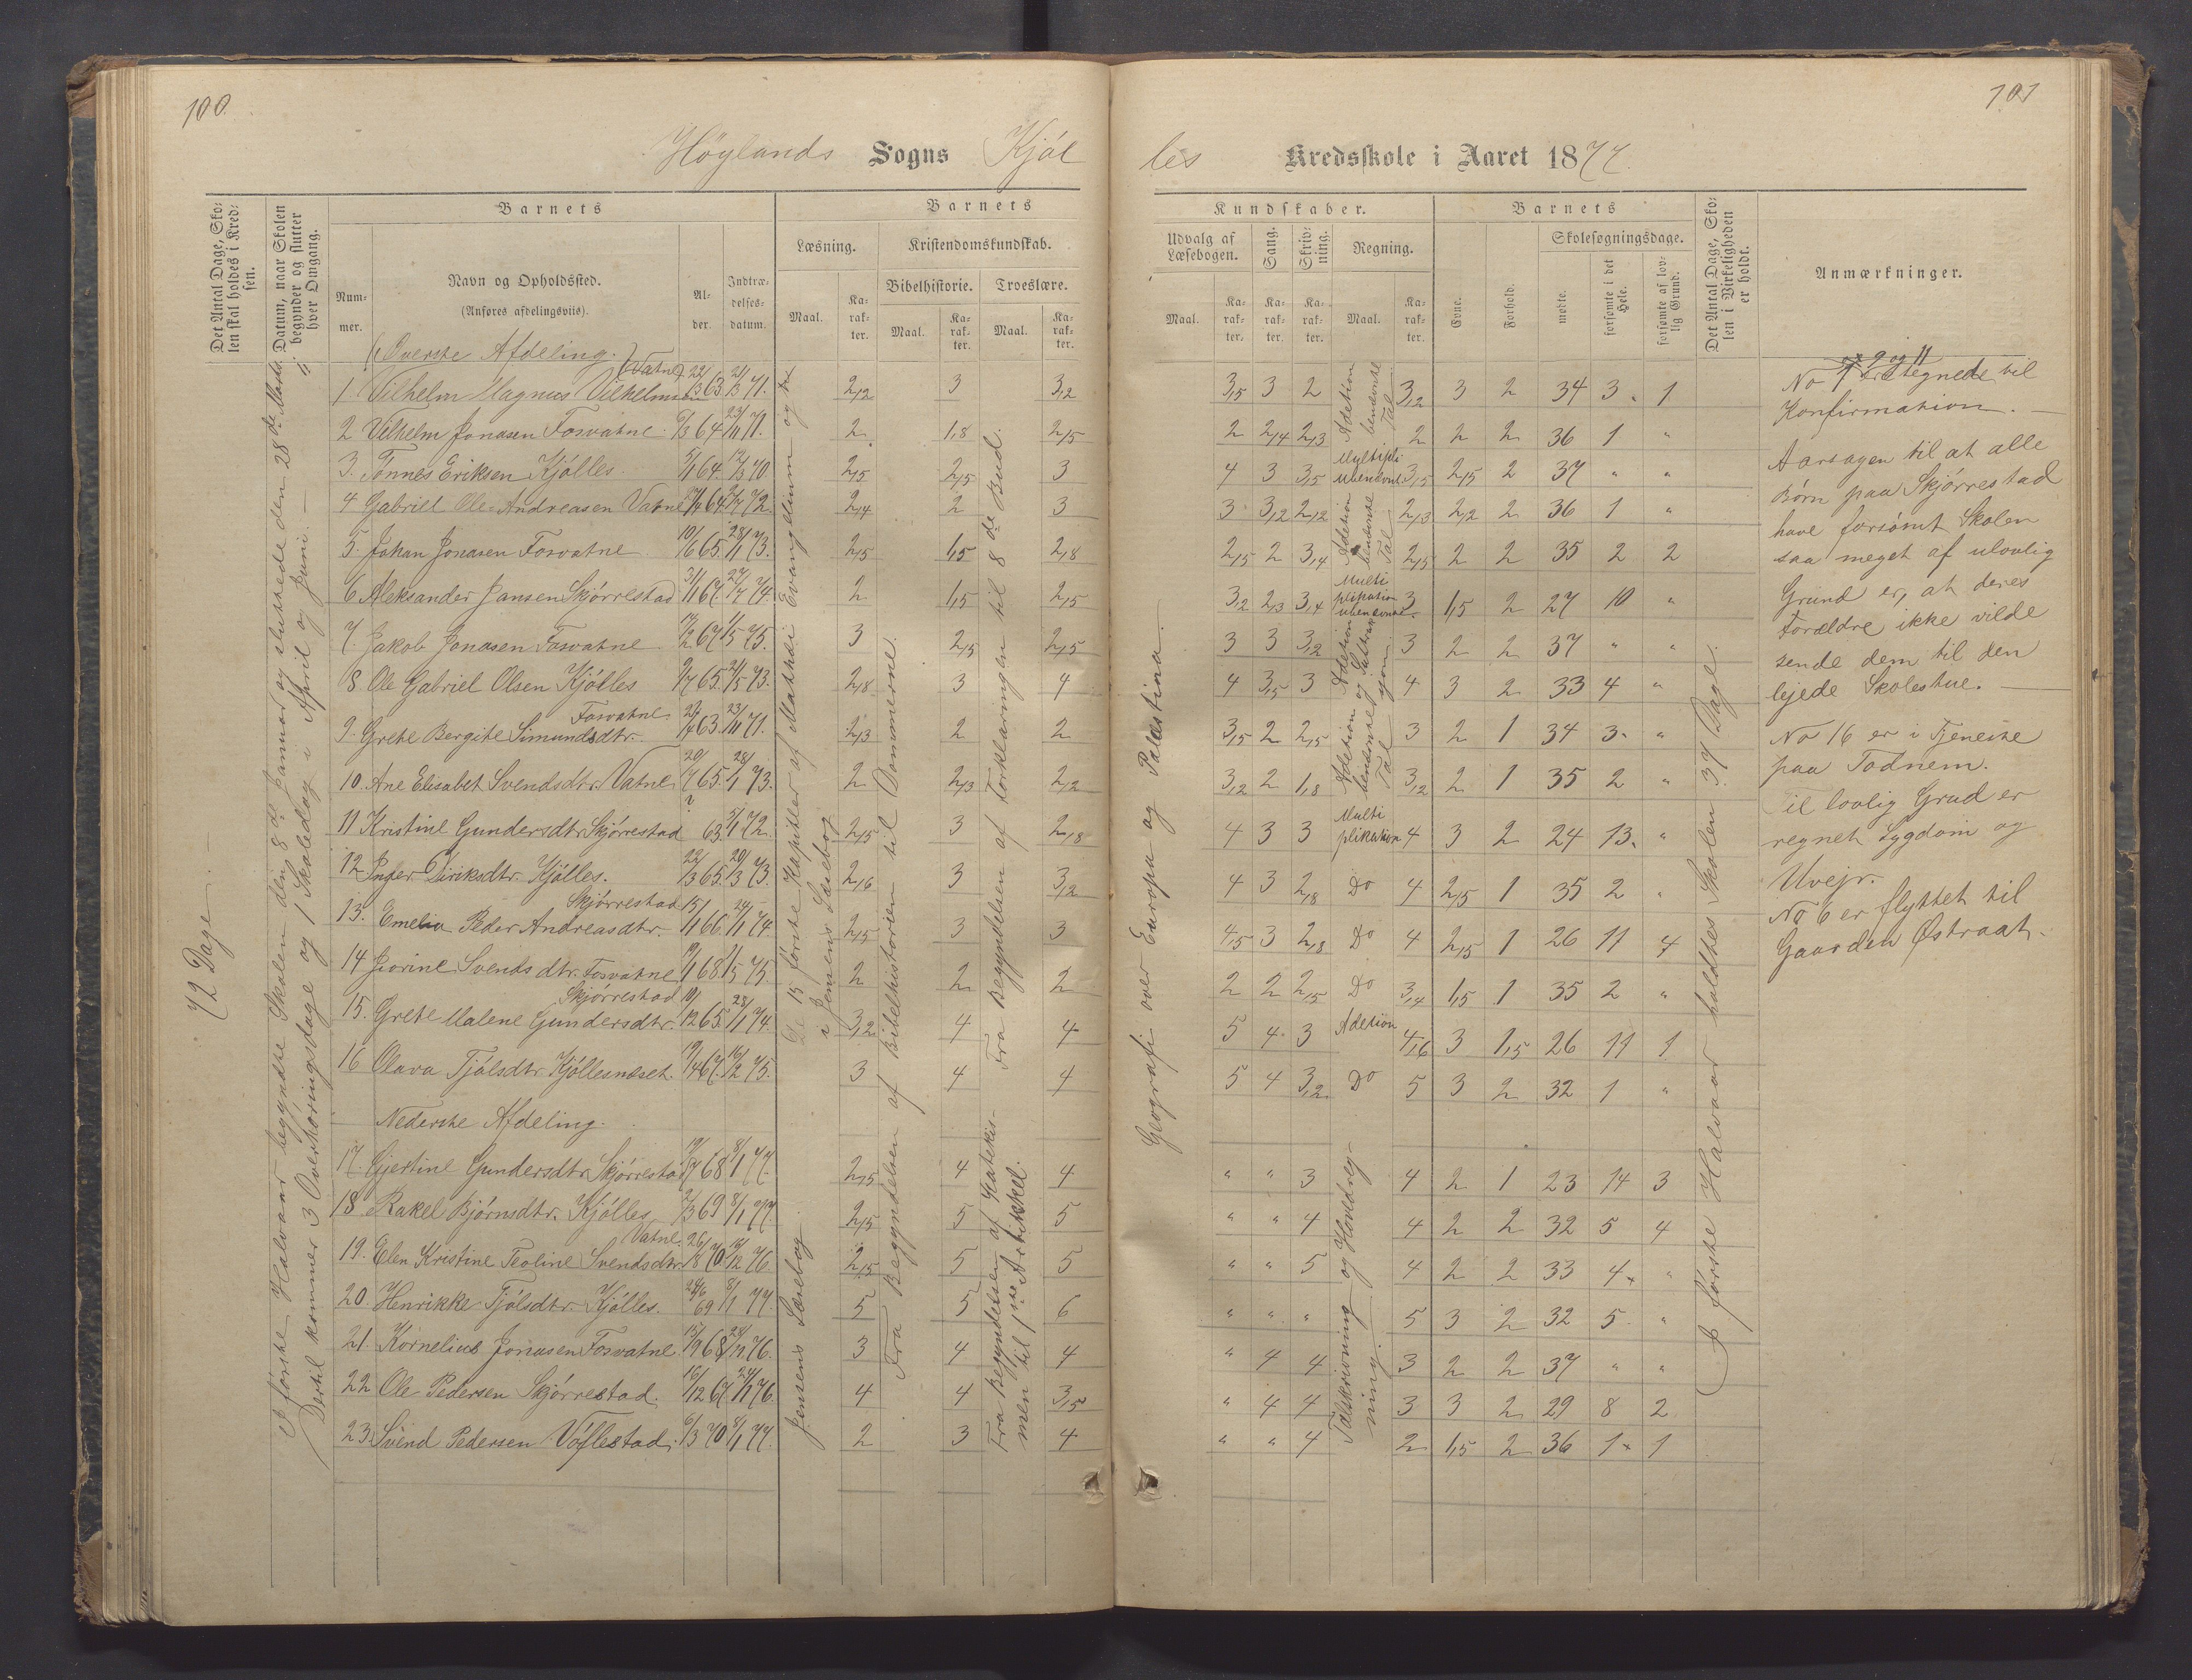 100.
Höylands Sogns Kjöl
Det Antal Dage, Skolen skal holdes i Kredsen.
Datum, naar Skolen begynder og slutter hver Omgang.
Barnets
Nummer.
Navn og Opholdssted.
(Anføres afdelingsviis).
Alder.
Indtrædelsesdatum.
Barnets
Læsning.
Kristendomskundskab.
Bibelhistorie.
Troeslære.
Maal.
Karakter.
Maal.
Karakter.
Maal.
Karakter.
72 Dage.
I første Halvaar begyndte Skolen den 8de Januar og sluttede den 28de Marts.
Dertil kommer 3 Overhøringsdage og 1 Skoledag i April og Juni.
De 15 første Kapitler af Matthæi Evangelium og
i Jensens Læsebog
Fra Begyndelsen af Bibelhistorien til Dommerne.
Fra Begyndelsen af Forklaringen til 8de Bud.
Jensens Læsebog.
Fra Begyndelsen af Katekismen til 1ste Artikkel.
Øverste Afdeling.
1 Vilhelm Magnus Vilhelmsen Vatne 22/3 63 21/3 71. 2,2 3 3,2
2 Vilhelm Jonasen Fosvatne 64 23/11 71. 2 1,8 2,5
3. Tønnes Eriksen Kjölles. 5/1 64. 12/3 70 2,5 2,5 3
4 Gabriel Ole Andreasen Vatne 64 72. 2,4 2 3
5. Johan Jonasen Fosvatne 10/6 65. 28/1 73. 2,5 1,5 2,8
6 Aleksander Jansen Skjörrestad 31/1 67. 27/7 74. 2 1,5 2,5
7. Jakob Jonasen Fosvatne 67 1/5 75. 3 2,5 2,5
8 Ole Gabriel Olsen Kjölles 9/7 65. 21/5 73. 2,8 3 4
9. Grete Bergite Simundsdtr. Fosvatne 63. 23/11 71. 2,3 2 2
10. Ane Elisabet Svendsdtr. Vatne 20/7 65. 28/1 73. 2 2,3 2,2
11 Kristine Gundersdtr. Skjörrestad ? 63. 5/1 72. 2,5 3 2,8
12 Inger Eiriksdtr. Kjölles. 22/3 65. 20/3 73. 2,6 3 3,2
13. Emelia Peder Andreasdtr. Skjörrestad 15/1 66. 24/1 74 2,5 3 3
14 Jorine Svendsdtr. Fosvatne 68 1/5 75. 2 2 2
15. Grete Malene Gundersdtr. Skjörrestad 10/12 65. 28/1 74. 3,2 4 4
16 Olava Tjölsdtr. Kjöllesnæset. 19/4 67. 16/2 75. 3 4 4
Nederste Afdeling.
17. Gjertine Gundersdtr. Skjörrestad 19/7 68 8/1 77. 2,5 4 4
18. Rakel Bjørnsdtr. Kjölles 2/3 69 8/1 77. 2,5 5 5
19. Elen Kristine Teoline Svendsdtr. Vatne. 26/8 70 16/12 76. 2,5 5 5
20. Henrikke Tjölsdtr. Kjölles. 24/6 69 8/1 77. 5 5 6
21. Kornelius Jonasen Fosvatne. 15/9 68 76. 3 4 4
22 Ole Pedersen Skjörrestad. 16/12 67. 24/1 76. 4 4 3,5
23. Svend Pedersen 6/3 70 8/1 77. 2 3 4
101
les Kredsskole i Aaret 1877.
Kundskaber.
Udvalg af Læsebogen.
Sang.
Skrivning.
Regning.
Maal.
Karakter.
Karakter.
Karakter.
Maal.
Karakter.
Barnets
Evne.
Forhold.
Skolesøgningsdage.
mødte.
forsømte i det Hele.
forsømte af lovlig Grund.
Det Antal Dage, Skolen i Virkeligheden er holdt.
Anmærkninger.
Geografi over Europa og Palæstina.
I første Halvaar holdtes Skolen 37 Dage.
3,5 3 2 Adetion benævnte Tal 3,2 3 2 34 3. 1
2 2,4 2,3 2 2 2 36 1 "
4 3 3,5 Multipli ubenævnt 3,5 2,5 2 37 " "
3 3,2 2,2 Adetion benævnte Tal 2,3 2,2 2 36 1 "
2,5 2 3,4 2,5 2 2 35 2 2
3,2 2,3 3,4 Multiplikation ubenævnte 3 1,5 2 27 10 "
3 3 3,2 Adetion og Subtraxjon 3 2 2 37 " "
4 3,5 3 4 3 2 33 4 "
3,5 2 2,5 Adetion benævnte Tal 3 2 1 34 3. "
3,2 2 1,8 3,2 2 1 35 2 "
4 3 3 Multiplikation 4 3 2 24 13. "
4 3 2,8 Do 4 2,5 1 35 2 "
4,5 3 2,8 Do 4 2,5 1 26 11 4
2 2 2,5 Do 3,4 1,5 1 35 2 "
5 4 3 Adetion 4,6 3 1,5 26 11 1
5 4 3,2 Do 5 3 2 32 1 "
Talskrivning og Hovedregning.
" " 3 4 2 1 23 14 3
" " 4 4 2 2 32 5 4
" " 5 4 2 2 33 4 "
" " " 5 3 2 32 5. "
" 4 4 3 2 2 37 " "
" 4 4 3 3 2 29 8 2
" " 4 2 1,5 2 36 1 1
og 9 og 11
No 1 tegnede til
Konfirmation. —
Aarsagen til at alle
Børn paa Skjörrestad
have forsömt Skolen
saa meget af ulovlig
Grund er, at deres
Forældre ikke vilde
sende dem til den
lejede Skolestue. —
No 16 er i Tjeneste
paa Todnem.
Til lovlig Grud er
regnet Sygdom og
Uvejr.
No 6 er flyttet til
Gaarden Østraat.